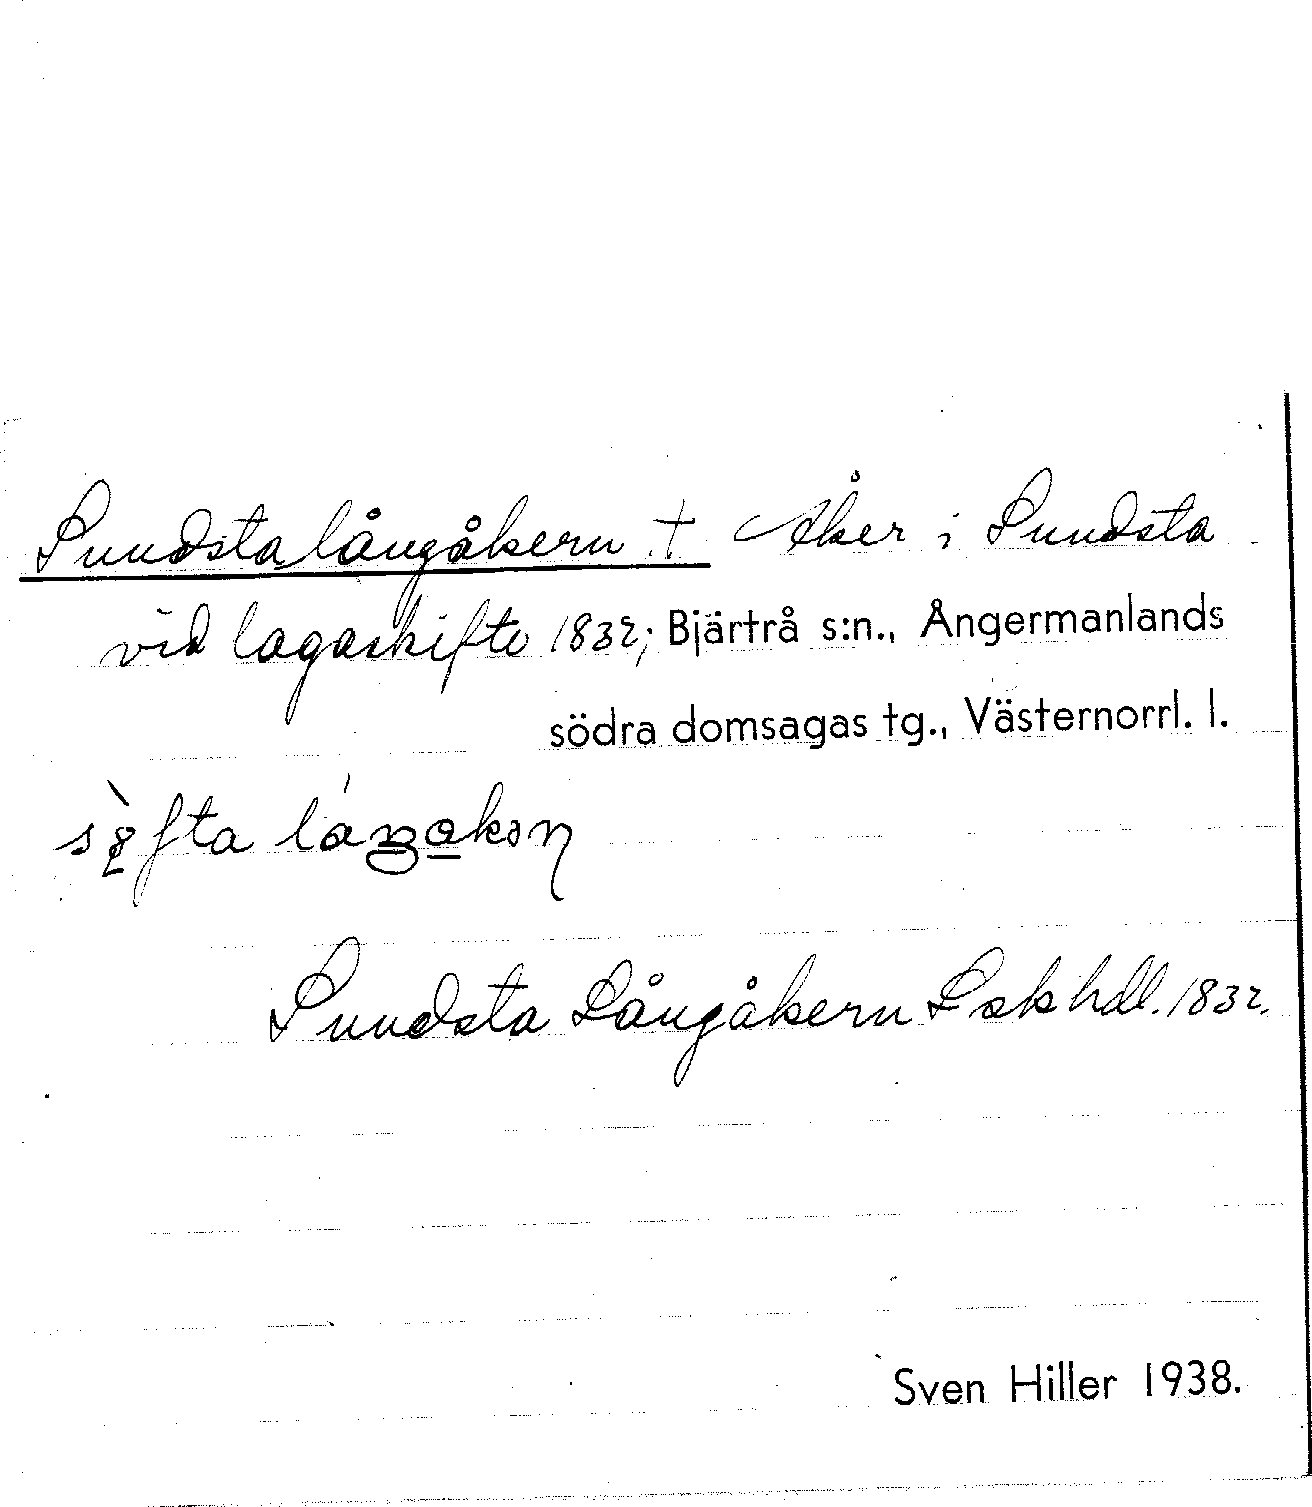 Sundstalångåkern † Åker i Sundsta
vid lagaskifte 1832; Bjärtrå s:n., Ångermanlands
södra domsagas tg., Västernorrl. l.
Sundsta Långåkern Lskhdl. 1832.
Sven Hiller 1938.